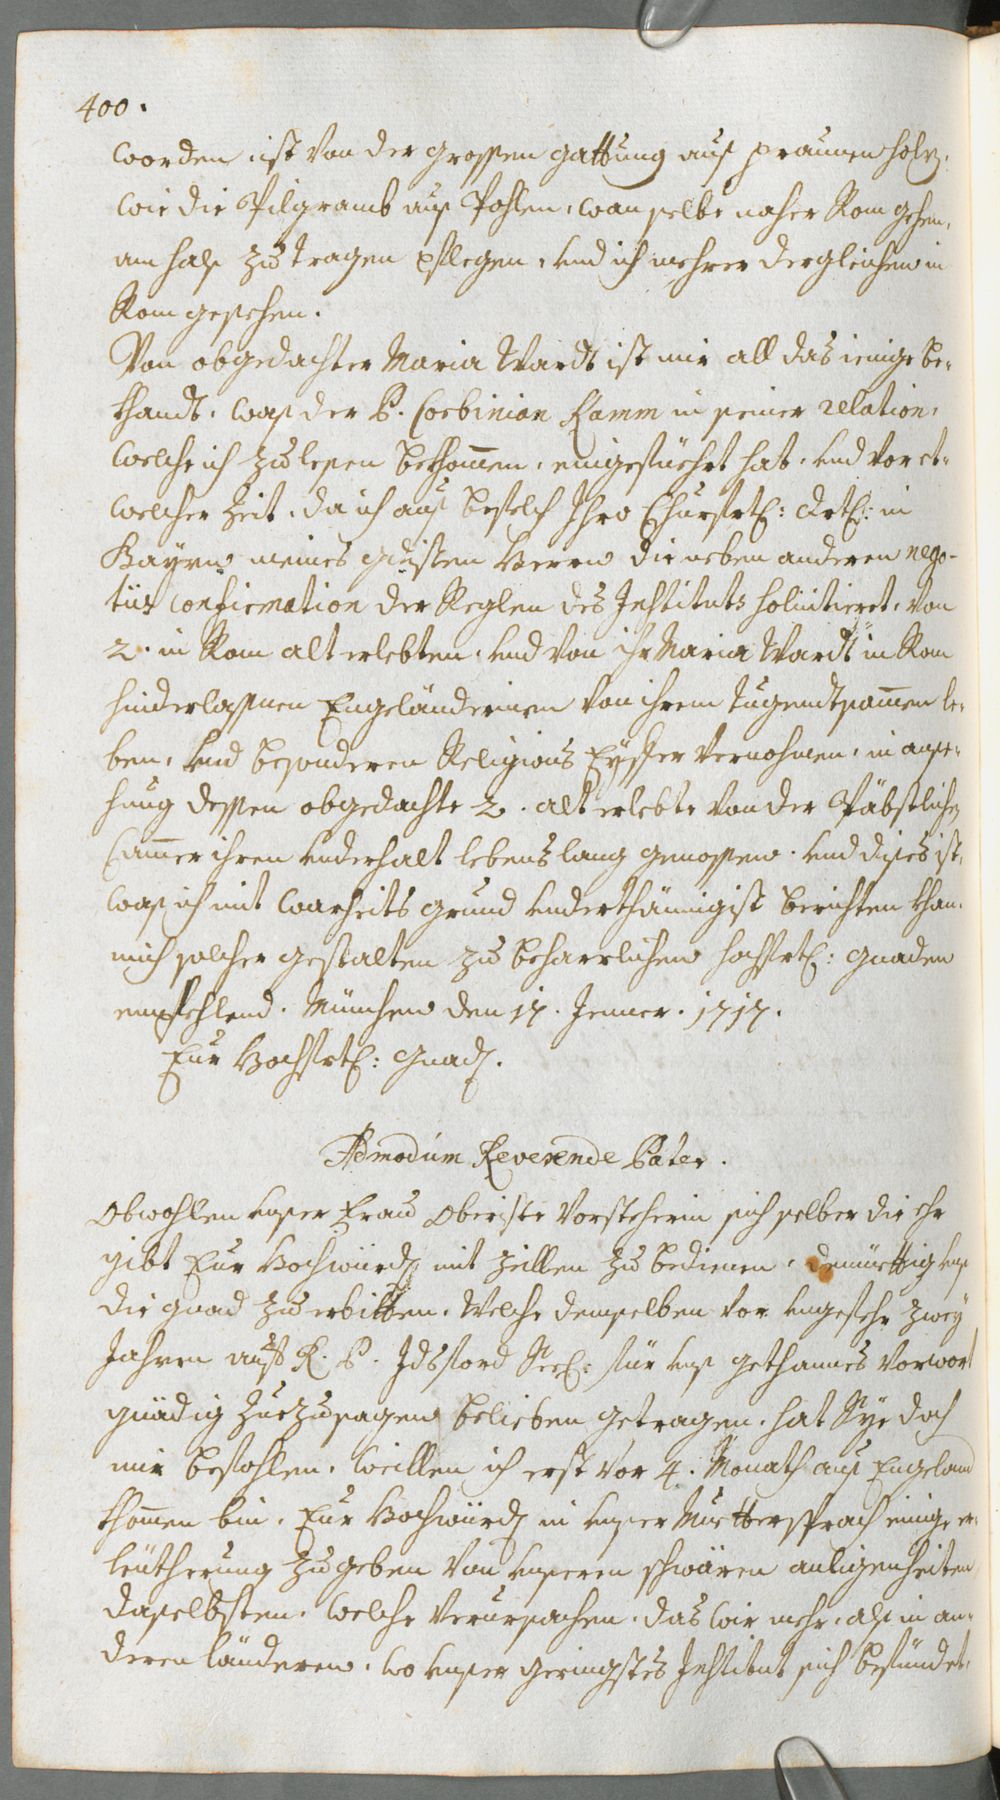 400.
worden, ist von der grossen gattung aus praunen holz,
wie die Pilgramb aus Pohlen, wan selbe naher Rom gehen,
am hals zu tragen pflegen, und ich mehrer dergleichen in
Rom gesehen.
Von obgedachter Maria Wardt ist mir all das ienige be-
khandt, was der P. Corbinian Kamm in seiner relation,
welche ich zu lesen bekhommen, eingeführt hat, und vor et-
welcher Zeit, da ich aus befelch Ihro Churfrtl: Drtl: in
Bayrn meines gdisten Herrn die neben anderen nego-
tiis confirmation der Reglen des Instituts sollicitieret, von
2. in Rom alt erlebten, und von ihr Maria Wardt in Rom
hinderlassnen Engeländerinen von ihrem tugendtsamen le-
ben, und besonderen Religions Eyffer vernohmen, in anse-
hung dessen obgedachte 2. alt erlebte von der Päbstlichen
Cammer ihren underhalt lebenslang genossen. und dises ist,
was ich mit warheits grund underthänigist berichten khan,
mich solcher gestalten zu beharrlichen hochfrtl: gnaden
empfehlend. München den 17. Jenner. 1717.
Eur Hochfrtl: Gnad.
Admodum Reverende Pater.
Obwohlen unser Frau Oberiste Vorsteherin sich selber die ehr
gibt Eur Hochwürd mit zeillen zu bedienen, demüttig uns
die gnad zu erbitten, welche demselben vor ungefehr zwey
Jahren auf R. P. Seel: für uns gethannes Vorwort
gnädig zuezusagen belieben getragen, hat Sye doch
mir befohlen, weillen ich erst vor 4. Monath aus Engeland
khommen bin, Eur Hochwürd in unser Muettersprach einige er-
leütherung zu geben von unseren schwären anligenheiten
daselbsten, welche verursachen, das wir mehr, als in an-
deren länderen, wo unser geringstes Institut sich befündet,